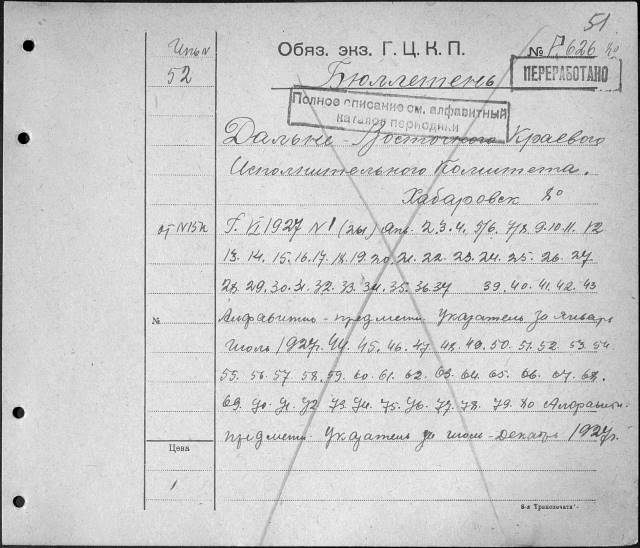 51
Обяз. экз. Г. Ц. К. П.
№ Р.626
ПЕРЕРАБОТАНО
52
Бюллетень
Полное описание см. алфавитный
каталог периодики
Дальне-Восточного Краевого
Исполнительного Комитета.
Хабаровск 4о
Г. VI 1927 N 1 (24) Янв. 2. 3. 4. 5/6. 7/8. 9. 10. 11. 12
13. 14. 15. 16. 17. 18. 19. 20. 21. 22. 23. 24. 25. 26. 27
28. 29. 30. 31. 32. 33. 34. 35. 36. 37 39. 40. 41. 42. 43
№ Алфавитно-предметн. указатель за январь
Июль 1927г. 44. 45. 46. 47. 48. 49. 50. 51. 52. 53. 54.
55. 56. 57. 58. 59. 60. 61. 62. 63. 64. 65. 66. 67. 68.
69. 70. 71. 72 73. 74. 75. 76. 77. 78. 79. 80 Алфавитн.
предметн. указатель за июль-декабрь 1927г.
Цена
8-я Транспечать.